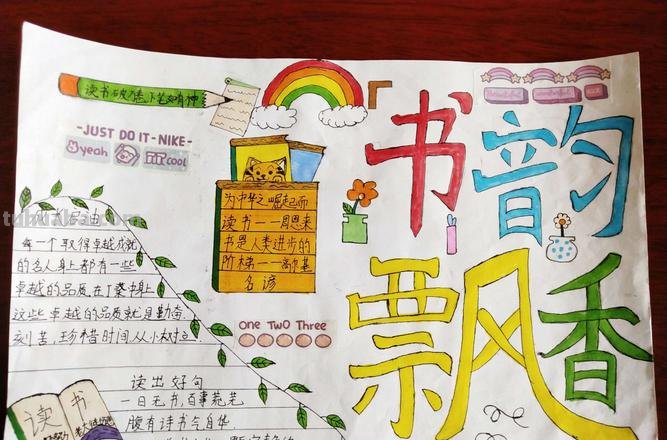 读书破万卷下笔如有神
书韵
飘香
-JUST DO IT-NIKE-
yeah
cool
为中华之崛起而
读书——周恩来
书是人类进步的
阶梯——高尔基
名谚
每一个取得卓越成就
的名人身上都有一些
卓越的品质,在丁
这些卓越的品质就是勤奋
刻苦,珍惜时间从小树立
One Two Three
读书
读出好句
一日无书,百事荒芜
腹有诗书气自华